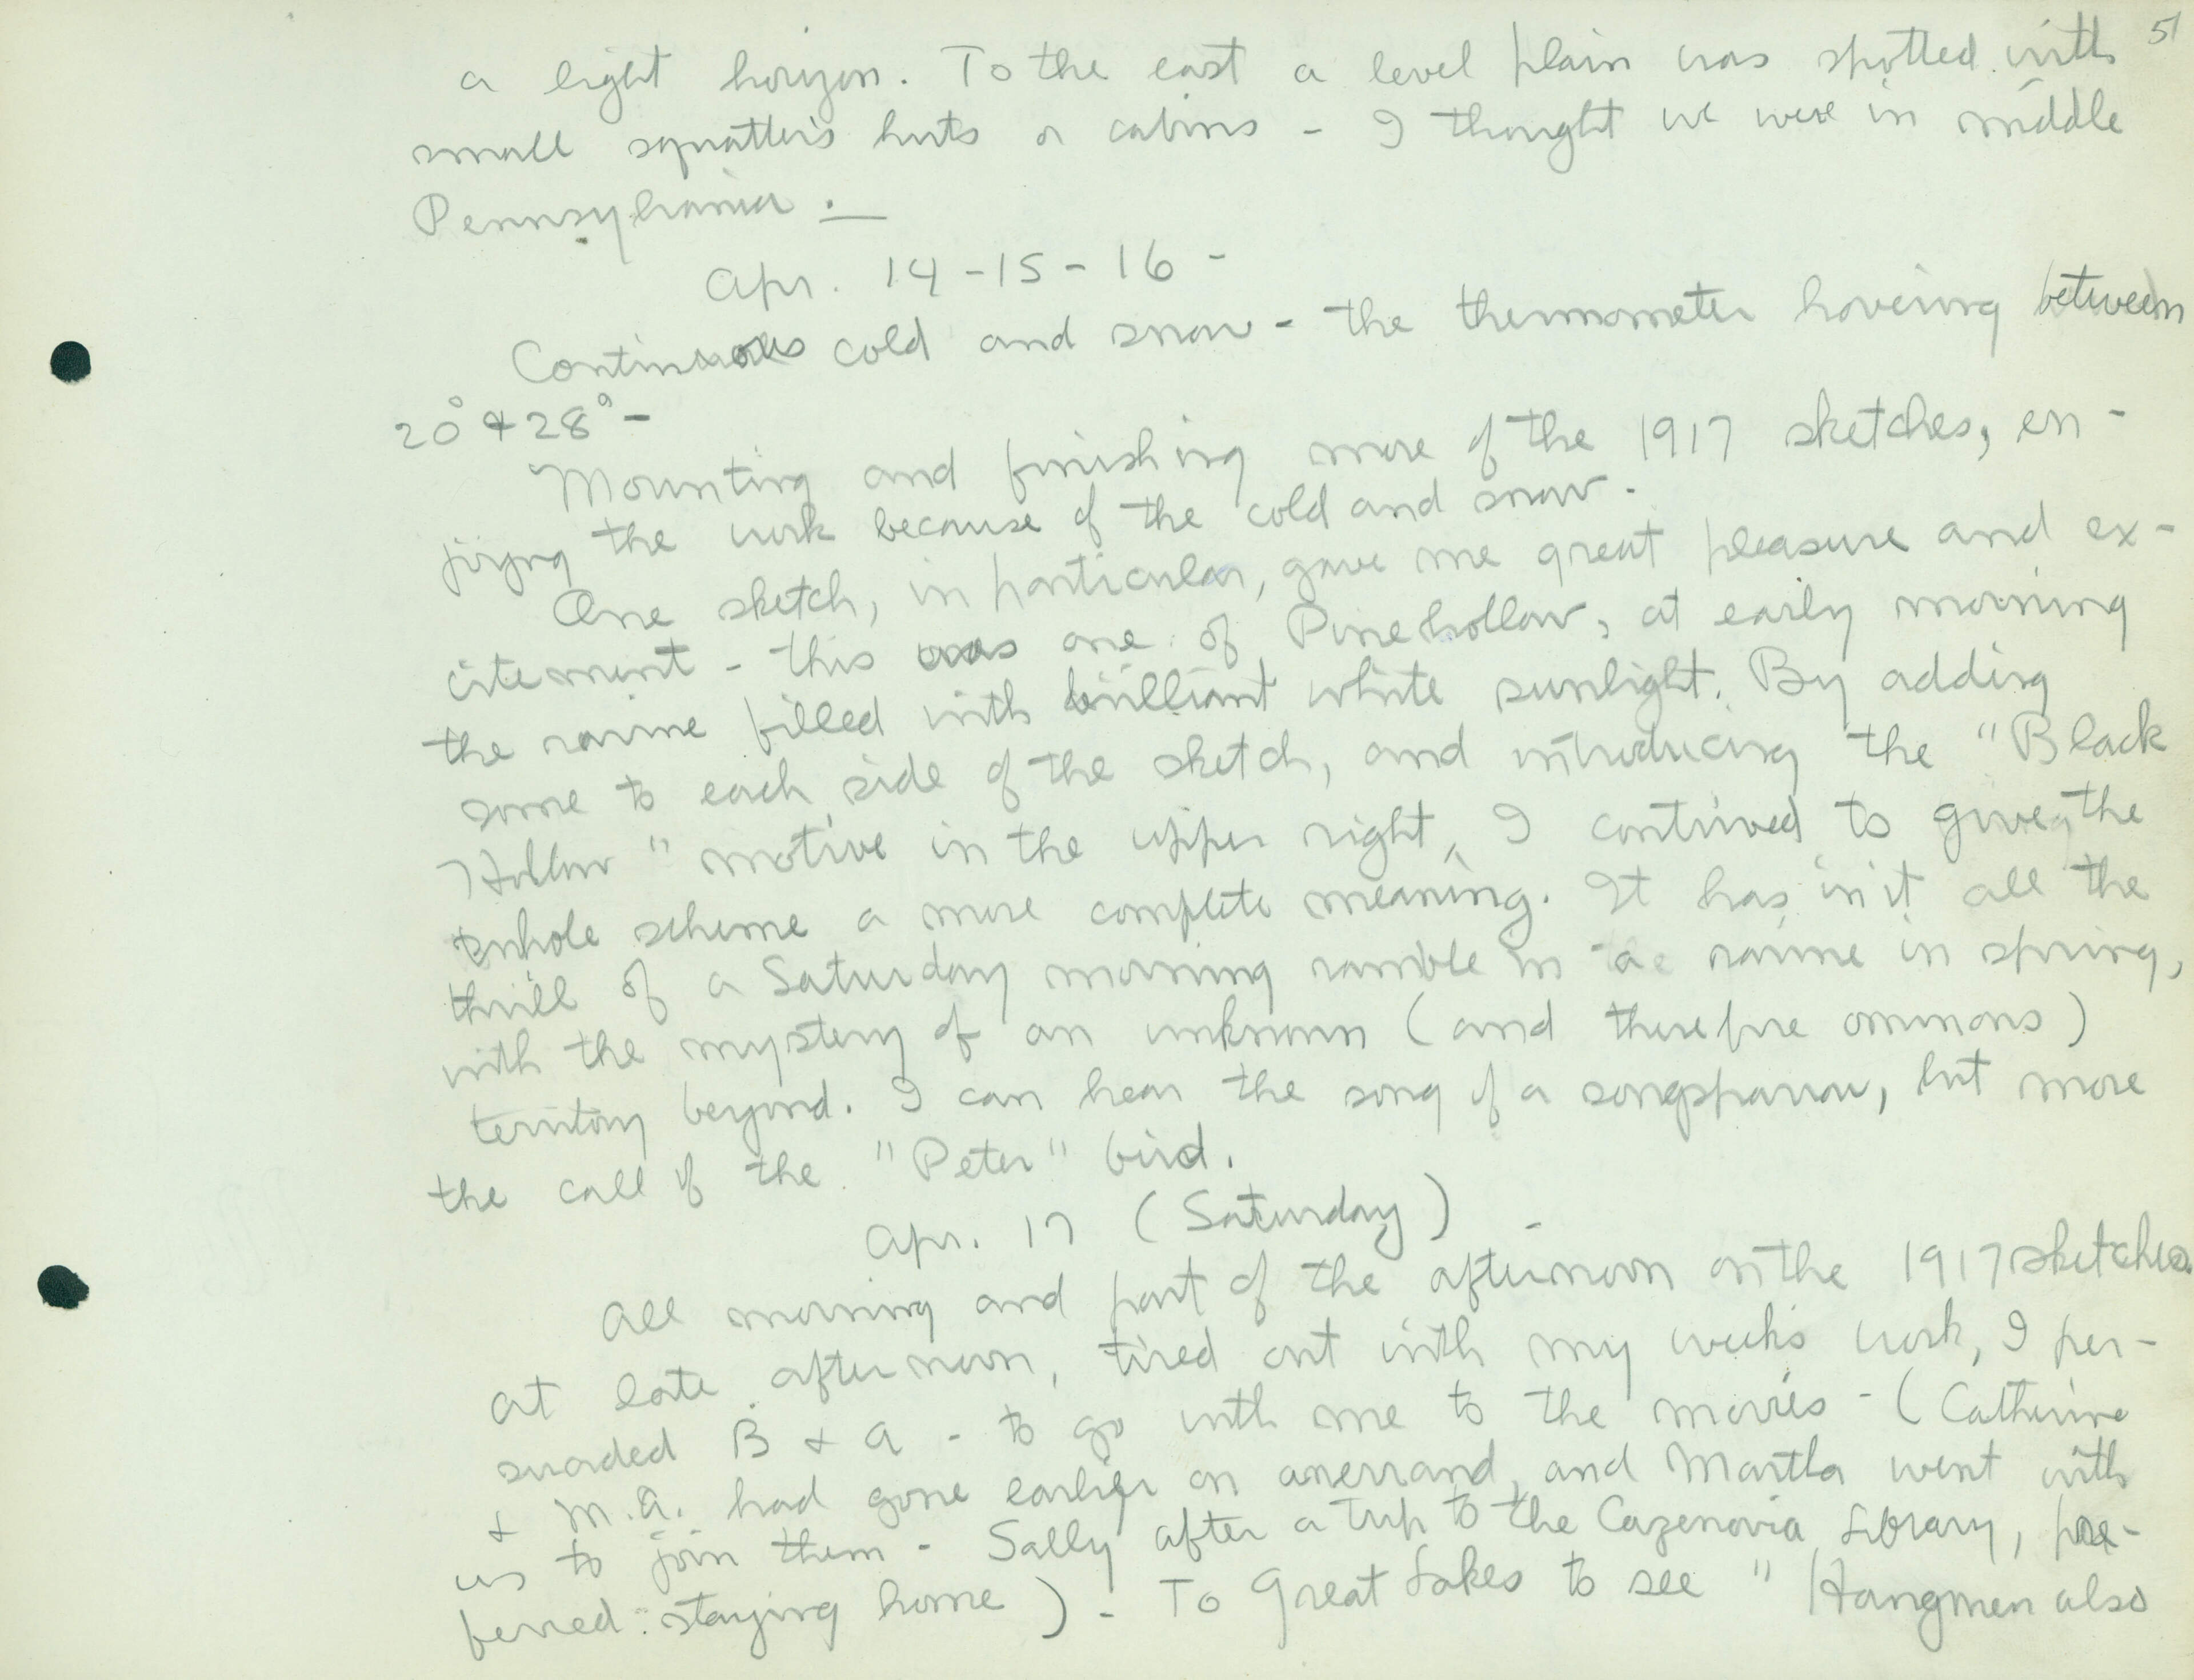 51
a light horizon. To the east a level plain was spotted with
small squatter's huts or cabins - I thought we were in middle
Pennsylvania. —
Apr. 14-15-16 -
Continuous cold and snow - the thermometer hovering between
20° & 28° -
Mounting and finishing more of the 1917 sketches, en-
joying the work because of the cold and snow.
One sketch, in particular, gave me great pleasure and ex-
citement - this was one of Pinehollow, at early morning
the ravine filled with brilliant white sunlight. By adding
some to each side of the sketch, and introducing the "Black
Hollow" motive in the upper right, I contrived to give the
whole scheme a more complete meaning. It has in it all the
thrill of a Saturday morning ramble in a ravine in spring,
with the mystery of an unknown (and therefore ominous)
territory beyond. I can hear the song of a songsparrow, but more
the call of the "Peter" bird.
Apr. 17 (Saturday) -
All morning and part of the afternoon on the 1917 sketches.
At late afternoon, tired out with my week's work, I per-
suaded B & A - to go with me to the movies - (Catherine
& M.A. had gone earlier on an errand, and Martha went with
us to join them - Sally after a trip to the Cazenovia Library, pre-
ferred staying home) - To Great Lakes to see "Hangmen also